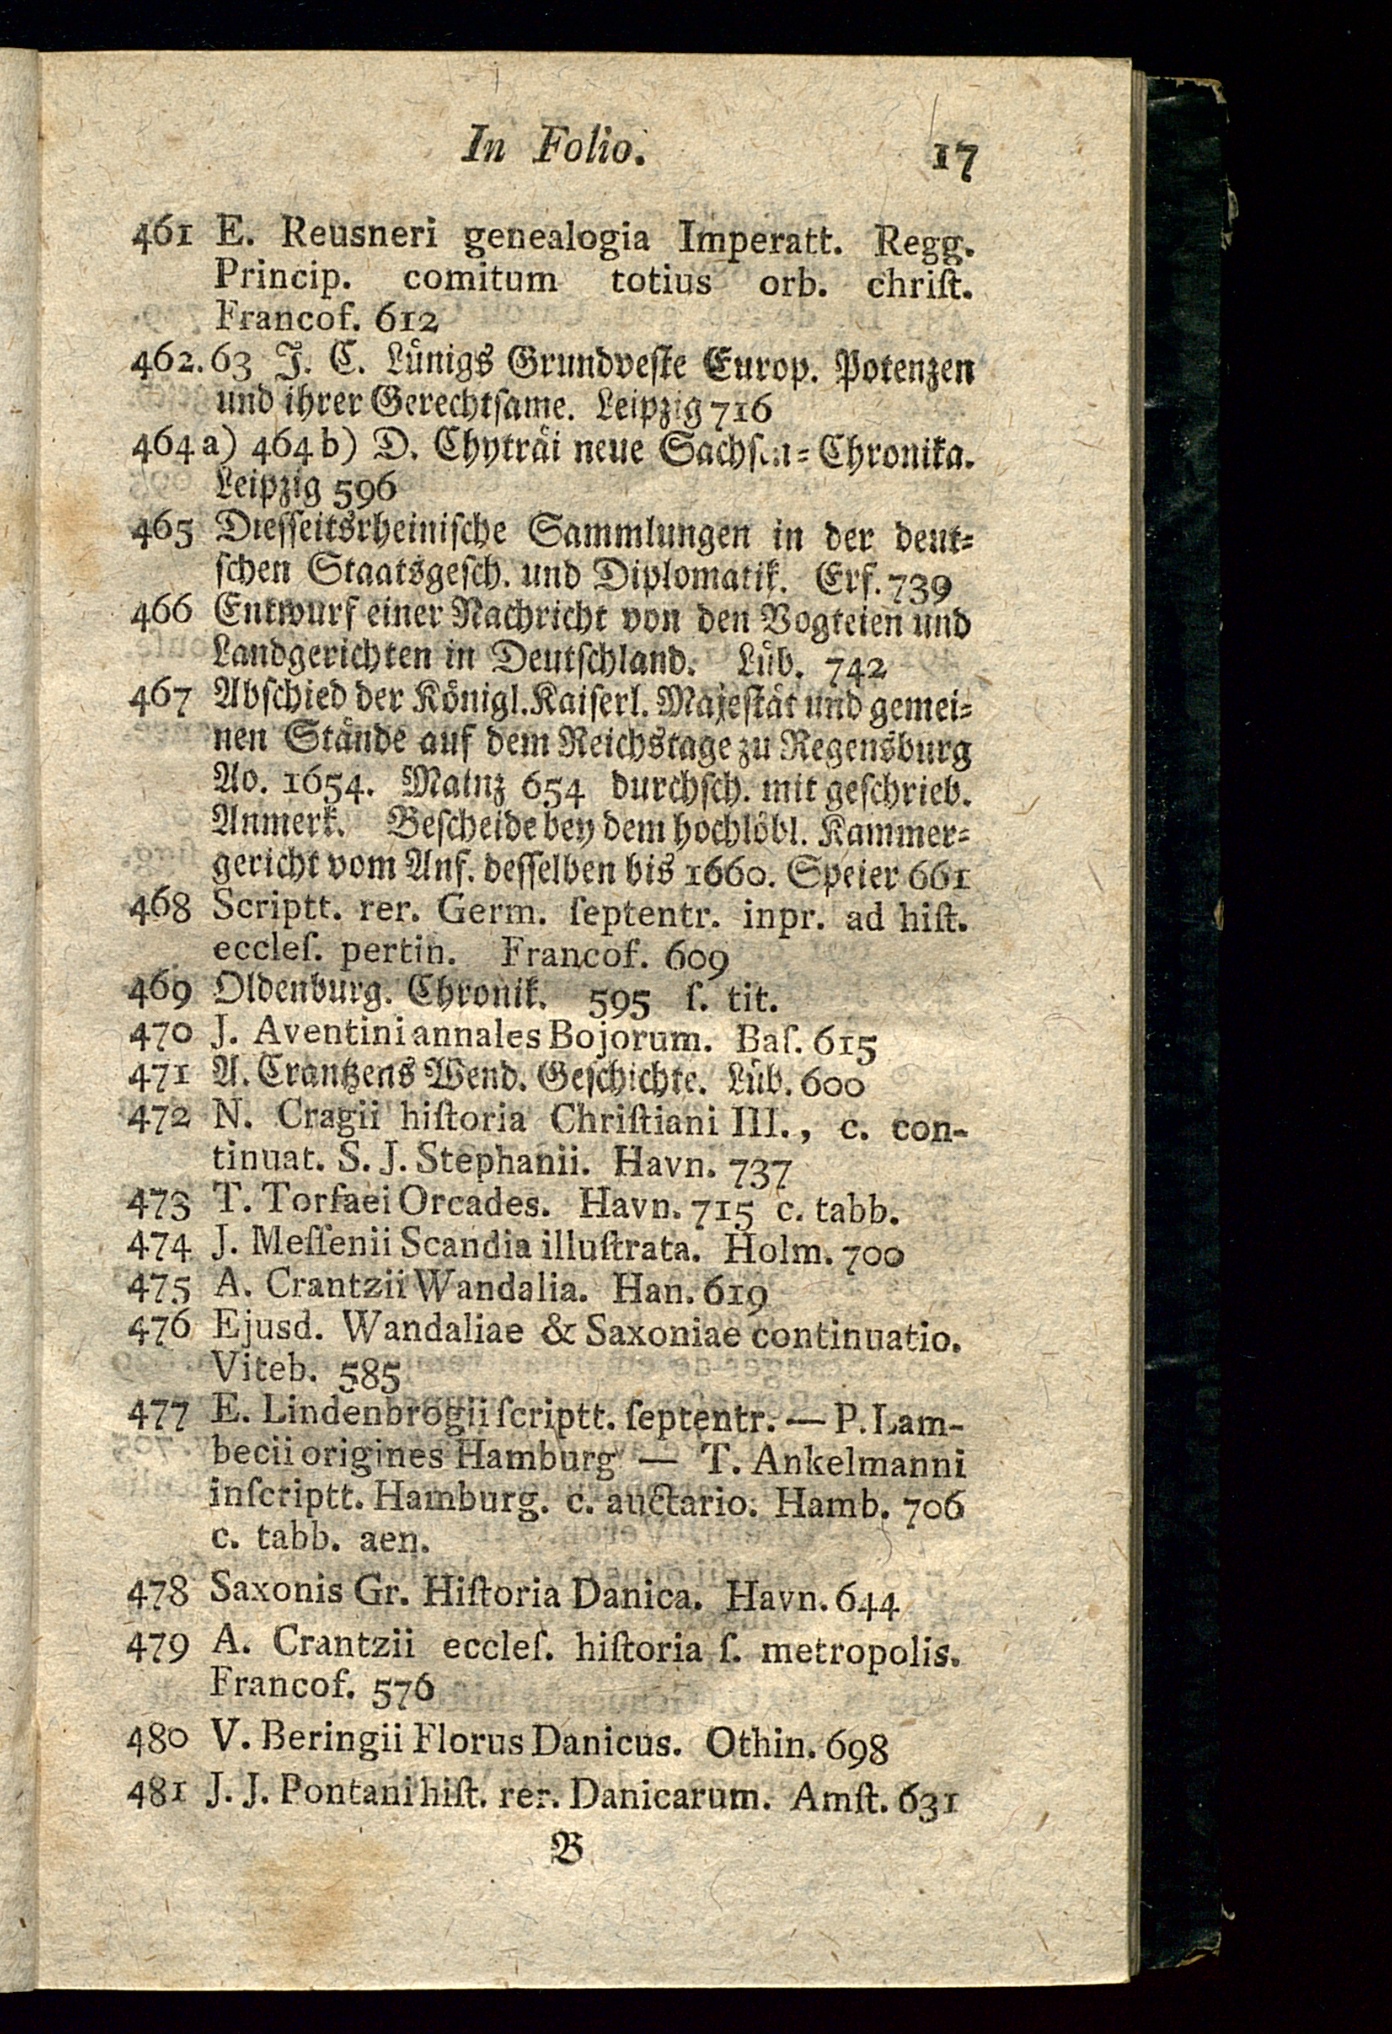 In Folio. 17
461 E. Reusneri genealogia Imperatt. Regg.
Princip. comitum totius orb. chriſt.
Francof. 612
462. 63 J. C. Lünigs Grundveſte Europ. Potenzen
und ihrer Gerechtſame. Leipzig 716
464 a) 464 b) D. Chyträi neue Sachſen=Chronika.
Leipzig 596
465 Dieſſeitsrheiniſche Sammlungen in der deut=
ſchen Staatsgeſch. und Diplomatik. Erf. 739
466 Entwurf einer Nachricht von den Vogteien und
Landgerichten in Deutſchland. Lüb. 742
467 Abſchied der Königl. Kaiſerl. Majeſtät und gemei=
nen Stände auf dem Reichstage zu Regensburg
Ao. 1654. Mainz 654 durchſch. mit geſchrieb.
Anmerk. Beſcheide bey dem hochlöbl. Kammer=
gericht vom Anf. deſſelben bis 1660. Speier 661
468 Scriptt. rer. Germ. ſeptentr. inpr. ad hiſt.
eccleſ. pertin. Francof. 609
469 Oldenburg. Chronik. 595 ſ. tit.
470 J. Aventini annales Bojorum. Baſ. 615
471 A. Crantzens Wend. Geſchichte. Lüb. 600
472 N. Cragii hiſtoria Chriſtiani III., c. con-
tinuat. S. J. Stephanii. Havn. 737
473 T. Torfaei Orcades. Havn. 715 c. tabb.
474 J. Meſſenii Scandia illuſtrata. Holm. 700
475 A. Crantzii Wandalia. Han. 619
476 Ejusd. Wandaliae & Saxoniae continuatio.
Viteb. 585
477 E. Lindenbrogii ſcriptt. ſeptentr. — P. Lam-
becii origines Hamburg — T. Ankelmanni
inſcriptt. Hamburg. c. auctario. Hamb. 706
c. tabb. aen.
478 Saxonis Gr. Hiſtoria Danica. Havn. 644
479 A. Crantzii eccleſ. hiſtoria ſ. metropolis.
Francof. 576
480 V. Beringii Florus Danicus. Othin. 698
481 J. J. Pontani hiſt. rer. Danicarum. Amſt. 631
B